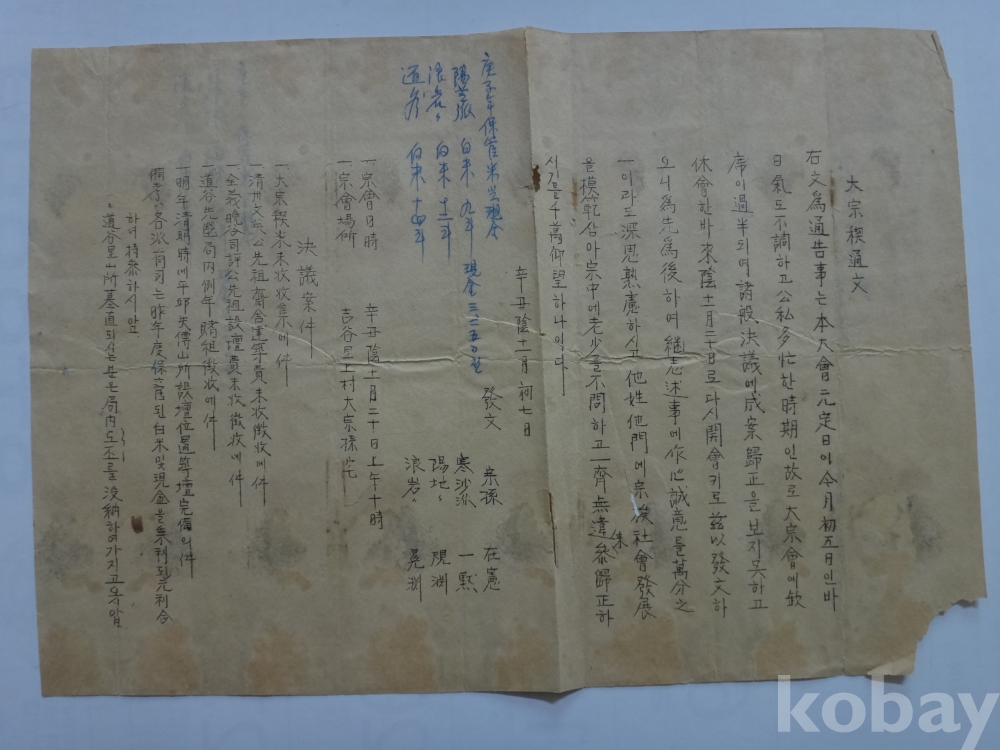 大宗稧通文
右文爲通告事는本大會元定日이今月初五日인바
日氣도不調하고公私多忙한時期인故로大宗會에欠
席이過半되여諸般決議에成案歸正을보지못하고
休會한바來陰十一月二十日로다시開會키로玆以發文하
오니爲先爲後하여繼志述事에作心誠意를萬分之
一이라도深思熟慮하시고他姓他門에宗族社會發展
을模範삼아宗中에老少를不問하고一齊無違參歸正하
시기를千萬仰望하나이다
辛丑陰十一月初七日
發文 宗孫 在憲
寒沙派 一默
陽地〃 淵
浪岩〃 晃淵
庚子年保管米與現金
陽 派 白米 九斗 現金
浪岩〃 白米 十二斗
道谷 白米 十四斗
一宗會日時 辛丑陰十一月二十日上午十時
一宗會場所 吉谷里上村大宗孫宅
決議案件
一大宗稧米未收收集에件
一淸州 公先祖齋舍建築費未收徵收에件
一全義 公先祖設壇費未收徵收에件
一道谷先塋局內例年賭租徵收에件
一明年淸明時에平邱失傳山所設壇位置等壇完備의件
備考 各派有司는昨年度保管된白米및現金을 利되 利合
하여持參하시압
〃道谷里山所墓直 는局內도조를沒納하여가지고